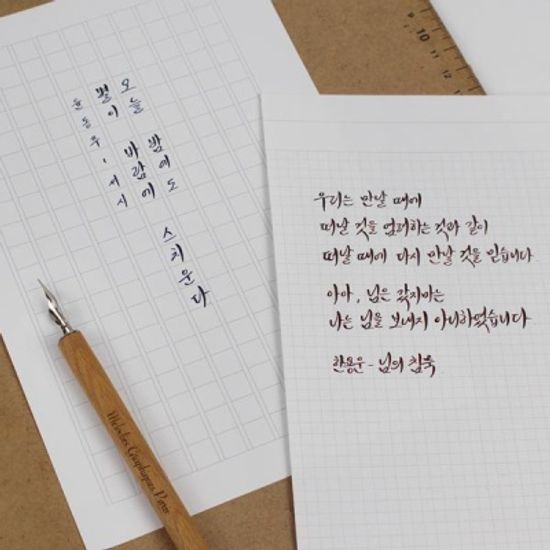 오늘 밤에도
별이 바람에 스치운다
윤동주, 서시
우리는 만날 때에
떠날 것을 염려하는 것과 같이
떠날 때에 다시 만날 것을 믿습니다
아아, 님은 갔지마는
나는 님을 보내지 아니하였습니다
한용운 - 님의 침묵
Mélodies Graphiques, Paris
10 11 12